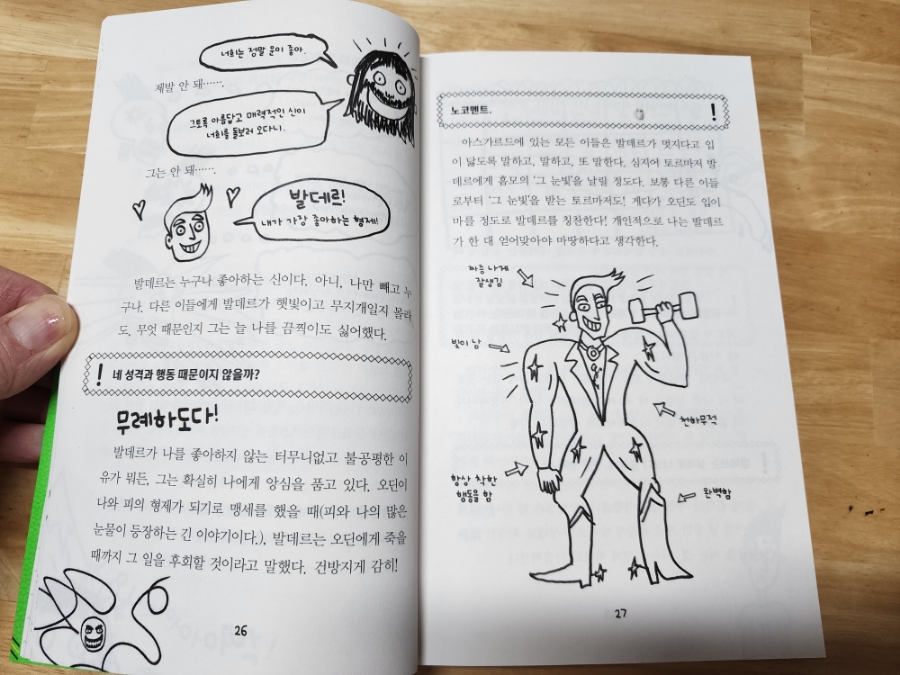 너희는 정말 운이 좋아.
제발 안 돼…….
그토록 아름답고 매력적인 신이
너희를 돌보러 오다니.
그는 안 돼…….
발데르!
내가 가장 좋아하는 형제!
발데르는 누구나 좋아하는 신이다. 아니, 나만 빼고 누
구나. 다른 이들에게 발데르가 햇빛이고 무지개일지 몰라
도. 무엇 때문인지 그는 늘 나를 끔찍이도 싫어했다.
! 네 성격과 행동 때문이지 않을까?
무례하도다!
발데르가 나를 좋아하지 않는 터무니없고 불공평한 이
유가 뭐든, 그는 확실히 나에게 앙심을 품고 있다. 오딘이
나와 피의 형제가 되기로 맹세를 했을 때(피와 나의 많은
눈물이 등장하는 긴 이야기이다.), 발데르는 오딘에게 죽을
때까지 그 일을 후회할 것이라고 말했다. 건방지게 감히!
26
노코멘트. !
아스가르드에 있는 모든 이들은 발데르가 멋지다고 입
이 닳도록 말하고, 말하고, 또 말한다. 심지어 토르마저 발
데르에게 흠모의 '그 눈빛'을 날릴 정도다. 보통 다른 이들
로부터 '그 눈빛'을 받는 토르마저도! 게다가 오딘도 입이
마를 정도로 발데르를 칭찬한다! 개인적으로 나는 발데르
가 한 대 얻어맞아야 마땅하다고 생각한다.
짜증 나게
잘생김
빛이 남
천하무적
항상 착한
행동을 함
완벽함
27